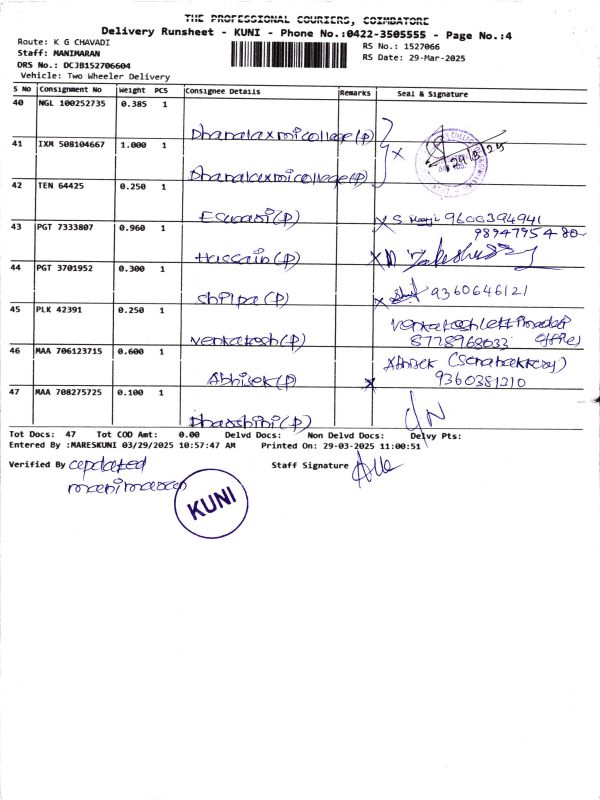 THE PROFESSIONAL COURIERS, COIMBATORE
Delivery Runsheet - KUNI - Phone No.:0422-3505555 - Page No.:4
Route: K G CHAVADI
Staff: MANIMARAN
DRS No.: DCJB152706604
Vehicle: Two Wheeler Delivery
RS No.: 1527066
RS Date: 29-Mar-2025
S No Consignment No Weight PCS Consignee Details Remarks Seal & Signature
40 NGL 100252735 0.385 1
Dhanalaxmicollege(p)
41 IXM 508104667 1.000 1
Dhanalaxmicollege(p)
29/3/25
42 TEN 64425 0.250 1
Eswari(p) 9600394941
43 PGT 7333807 0.960 1 9894795480
Hussain(p)
44 PGT 3701952 0.300 1
Shilpa(p) 9360646121
45 PLK 42391 0.250 1
Venkatesh(p) 8778968033 office
46 MAA 706123715 0.600 1 Abhisek
Abhisek(p) 9360381210
47 MAA 708275725 0.100 1
Dharshini(p)
Tot Docs: 47 Tot COD Amt: 0.00 Delvd Docs: Non Delvd Docs: Delvy Pts:
Entered By :MARESKUNI 03/29/2025 10:57:47 AM Printed On: 29-03-2025 11:00:51
Verified By updated
manimaran
Staff Signature
KUNI